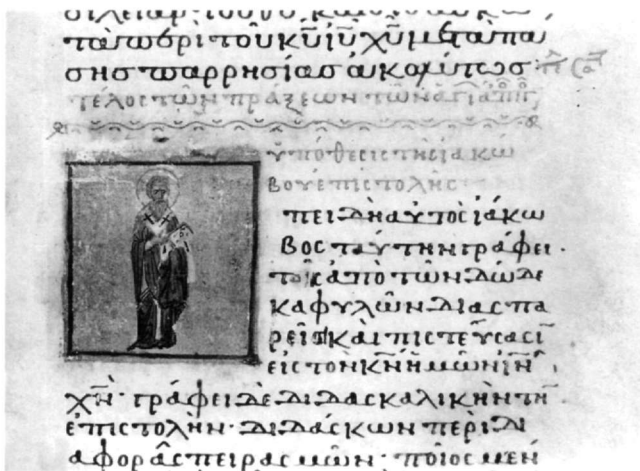 σιλείαν τοῦ θυ, κ
τὰ περὶ τοῦ κυ ιυ χυ μετὰ πα
σης παρρησίας ἀκωλύτως·
τέλος τῶν πράξεων τῶν ἁγίων
ὑπόθεσις τῆς ἰακώ
βου ἐπιστολῆς
πειδὴ αὐτὸς ἰάκω
βος ταύτην γράφει·
τοῖς ἀπὸ τῶν δώδε
κα φυλῶν διασπα
ρεῖσι καὶ πιστεύσασι
εἰς τὸν κν ἡμῶν ιν
χν· γράφει δὲ διδασκαλικὴν τὴν
ἐπιστολήν· διδάσκων περὶ δι
αφορᾶς πειρασμῶν· ποῖος μὲν